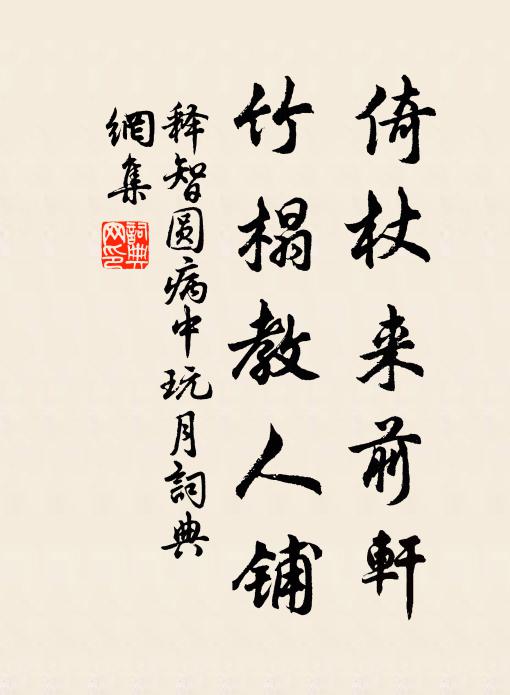 倚杖来前軒
竹榻教人铺
释智圆病中玩月詞典
網集
詞典網印